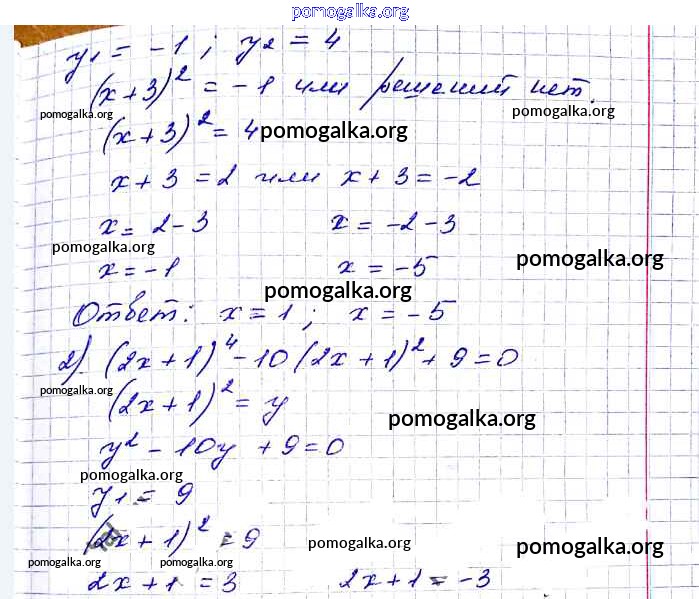 pomogalka.org
y₁ = -1 ; y₂ = 4
(x+3)² = -1 или решений нет.
pomogalka.org pomogalka.org
(x+3)² = 4 pomogalka.org
x+3 = 2 или x+3 = -2
x = 2-3 x = -2-3
pomogalka.org pomogalka.org
x = -1 x = -5
pomogalka.org
Ответ: x = 1 ; x = -5
2) (2x+1)⁴ - 10(2x+1)² + 9 = 0
pomogalka.org
(2x+1)² = y pomogalka.org
y² - 10y + 9 = 0
pomogalka.org
y₁ = 9
(2x+1)² = 9 pomogalka.org pomogalka.org
pomogalka.org pomogalka.org
2x+1 = 3 2x+1 = -3